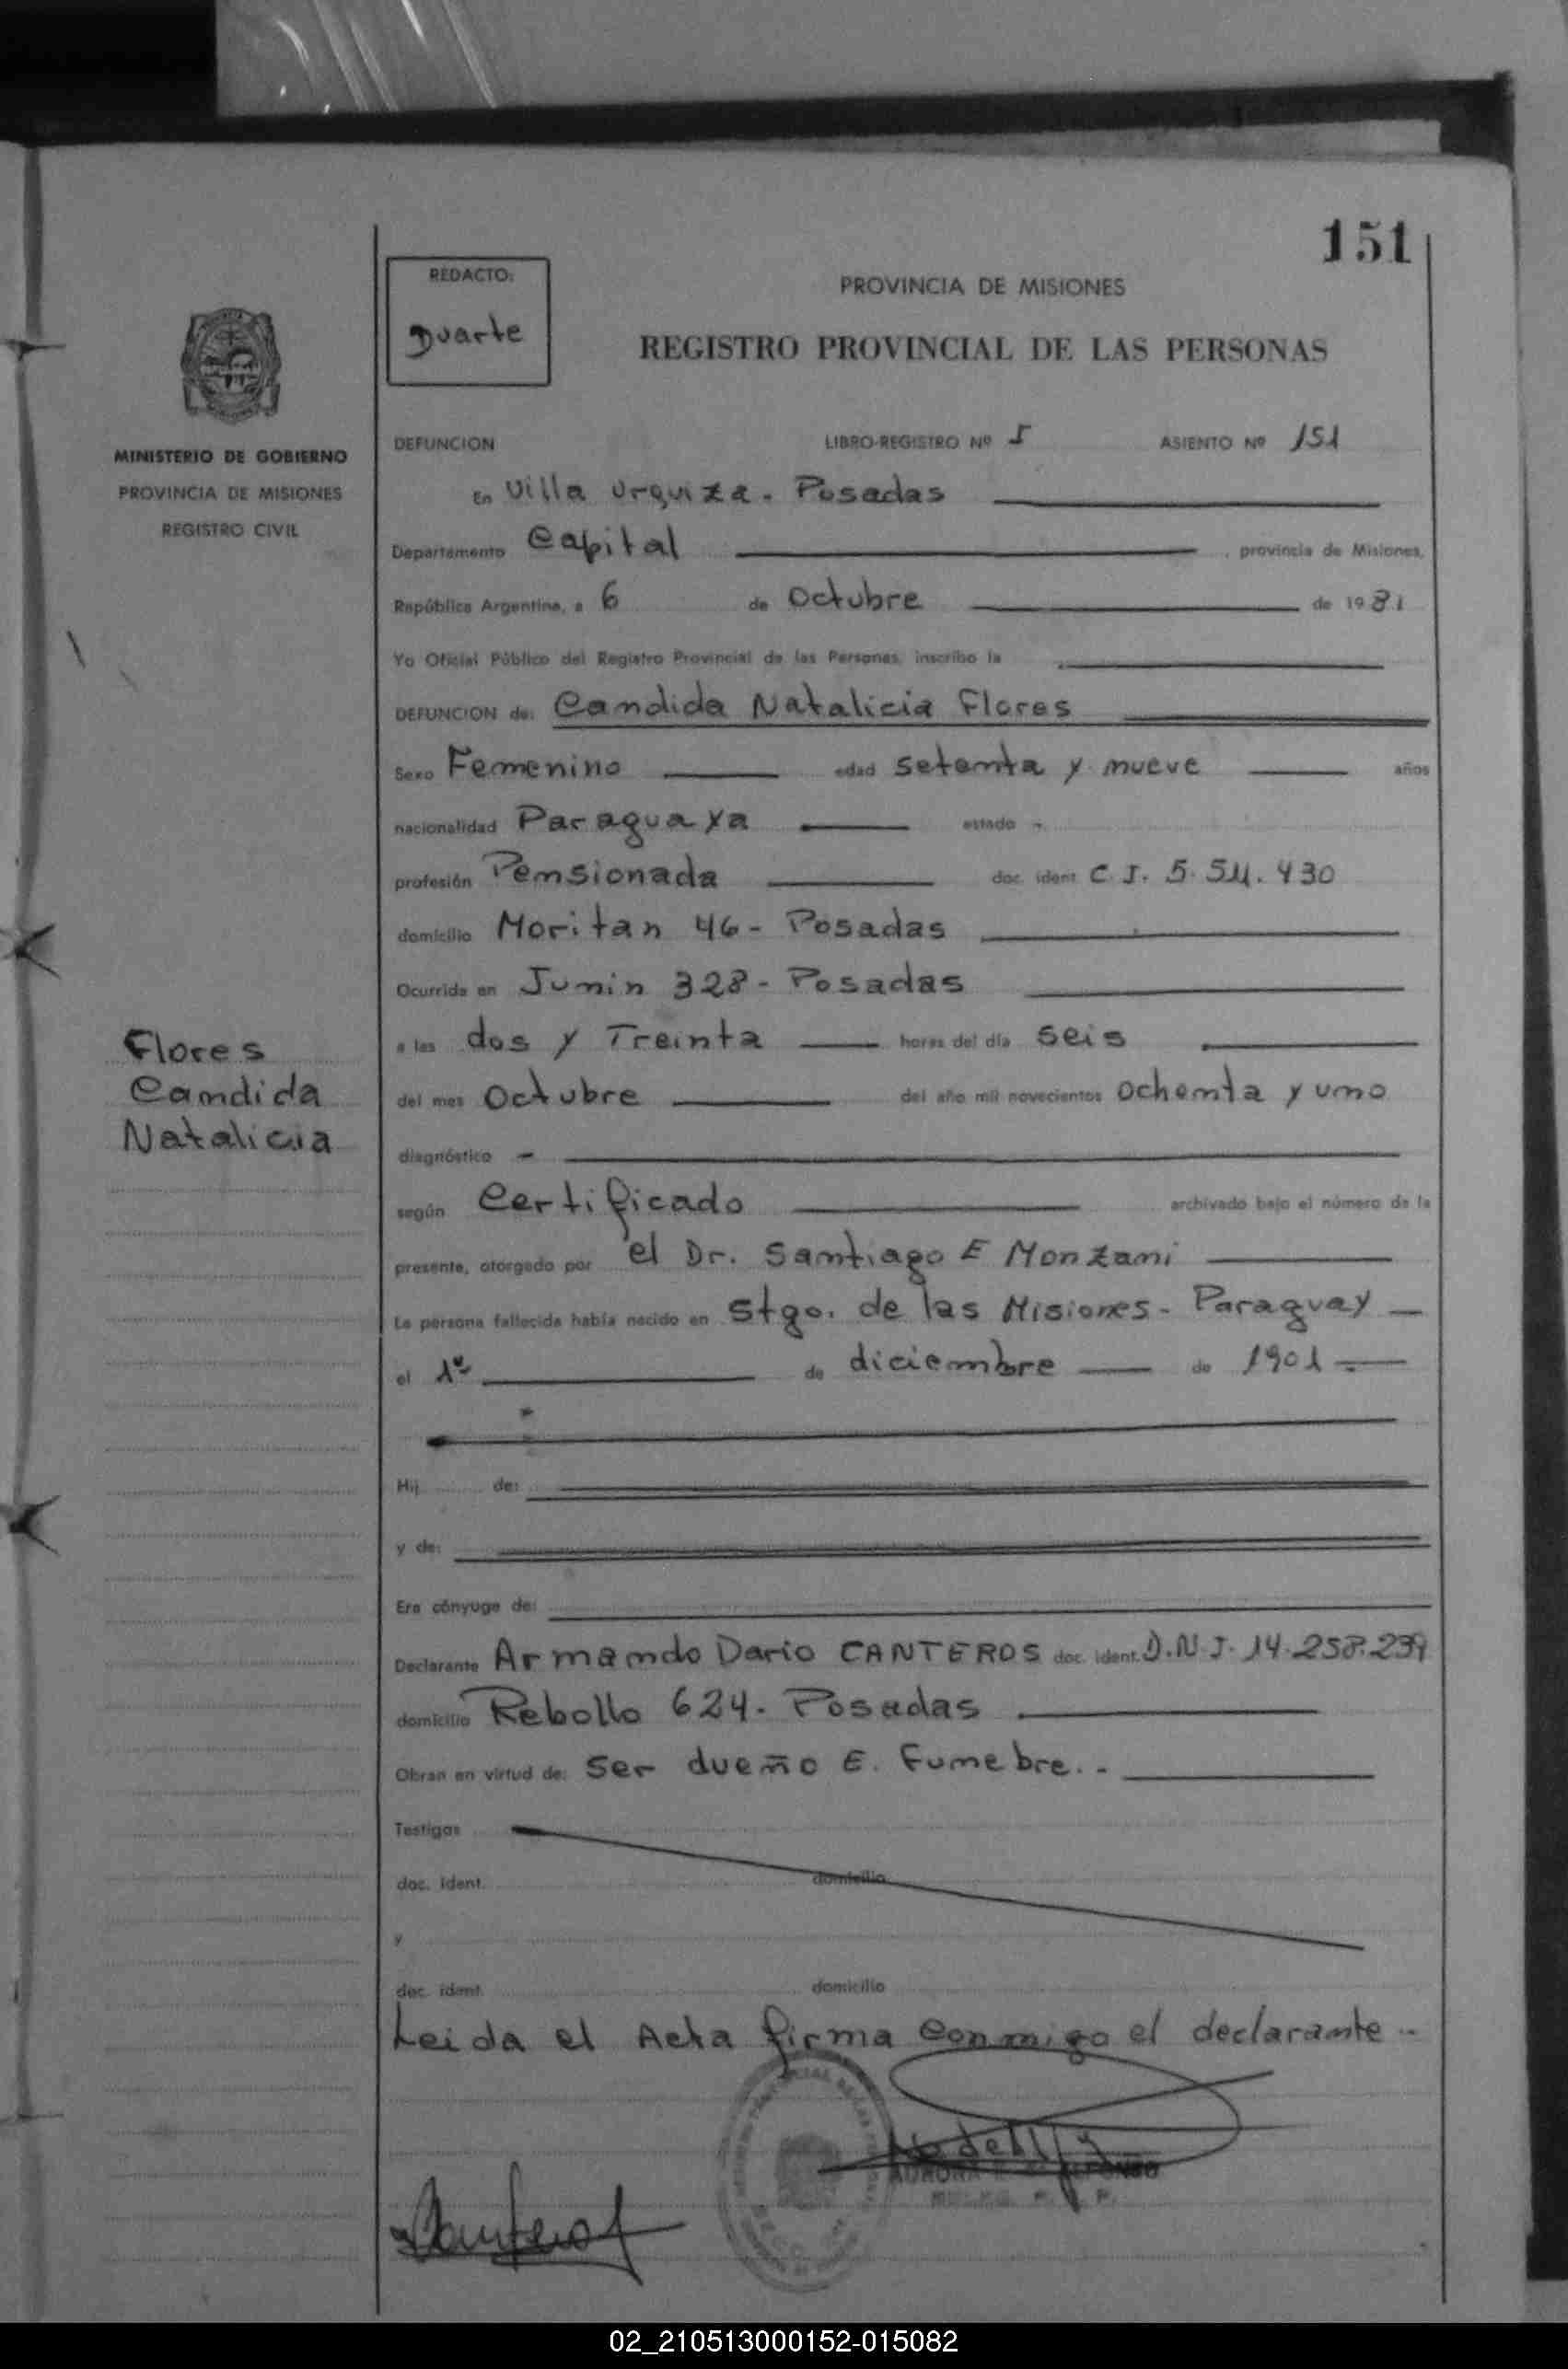 151
REDACTO:
Duarte
PROVINCIA DE MISIONES
REGISTRO PROVINCIAL DE LAS PERSONAS
MINISTERIO DE GOBIERNO
PROVINCIA DE MISIONES
REGISTRO CIVIL
DEFUNCION LIBRO-REGISTRO Nº 5 ASIENTO Nº 151
En Villa Urquiza. Posadas
Departamento Capital , provincia de Misiones,
República Argentina, a 6 de Octubre de 1981
Yo Oficial Público del Registro Provincial de las Personas, inscribo la
DEFUNCION de: Candida Natalicia Flores
Sexo Femenino edad setenta y nueve años
nacionalidad Paraguaya estado -
profesión Pensionada doc. ident. C.I. 5.511.430
domicilio Moritan 46 - Posadas
Ocurrida en Junin 328 - Posadas
a las dos y Treinta horas del día seis
del mes Octubre del año mil novecientos ochenta y uno
diagnóstico -
según Certificado archivado bajo el número de la
presente, otorgado por el Dr. Santiago E Monzani
La persona fallecida había nacido en Stgo. de las Misiones - Paraguay
el 1º de diciembre de 1901
Hij de:
y de:
Era cónyuge de:
Declarante Armando Dario CANTEROS doc. ident. D.N.I. 14.258.239
domicilio Rebollo 624. Posadas
Obran en virtud de: Ser dueño E. Funebre. -
Testigos
doc. ident. domicilio
y
doc. ident. domicilio
Leida el Acta firma conmigo el declarante -
Flores
Candida
Natalicia
AURORA
Canteros
02_210513000152-015082